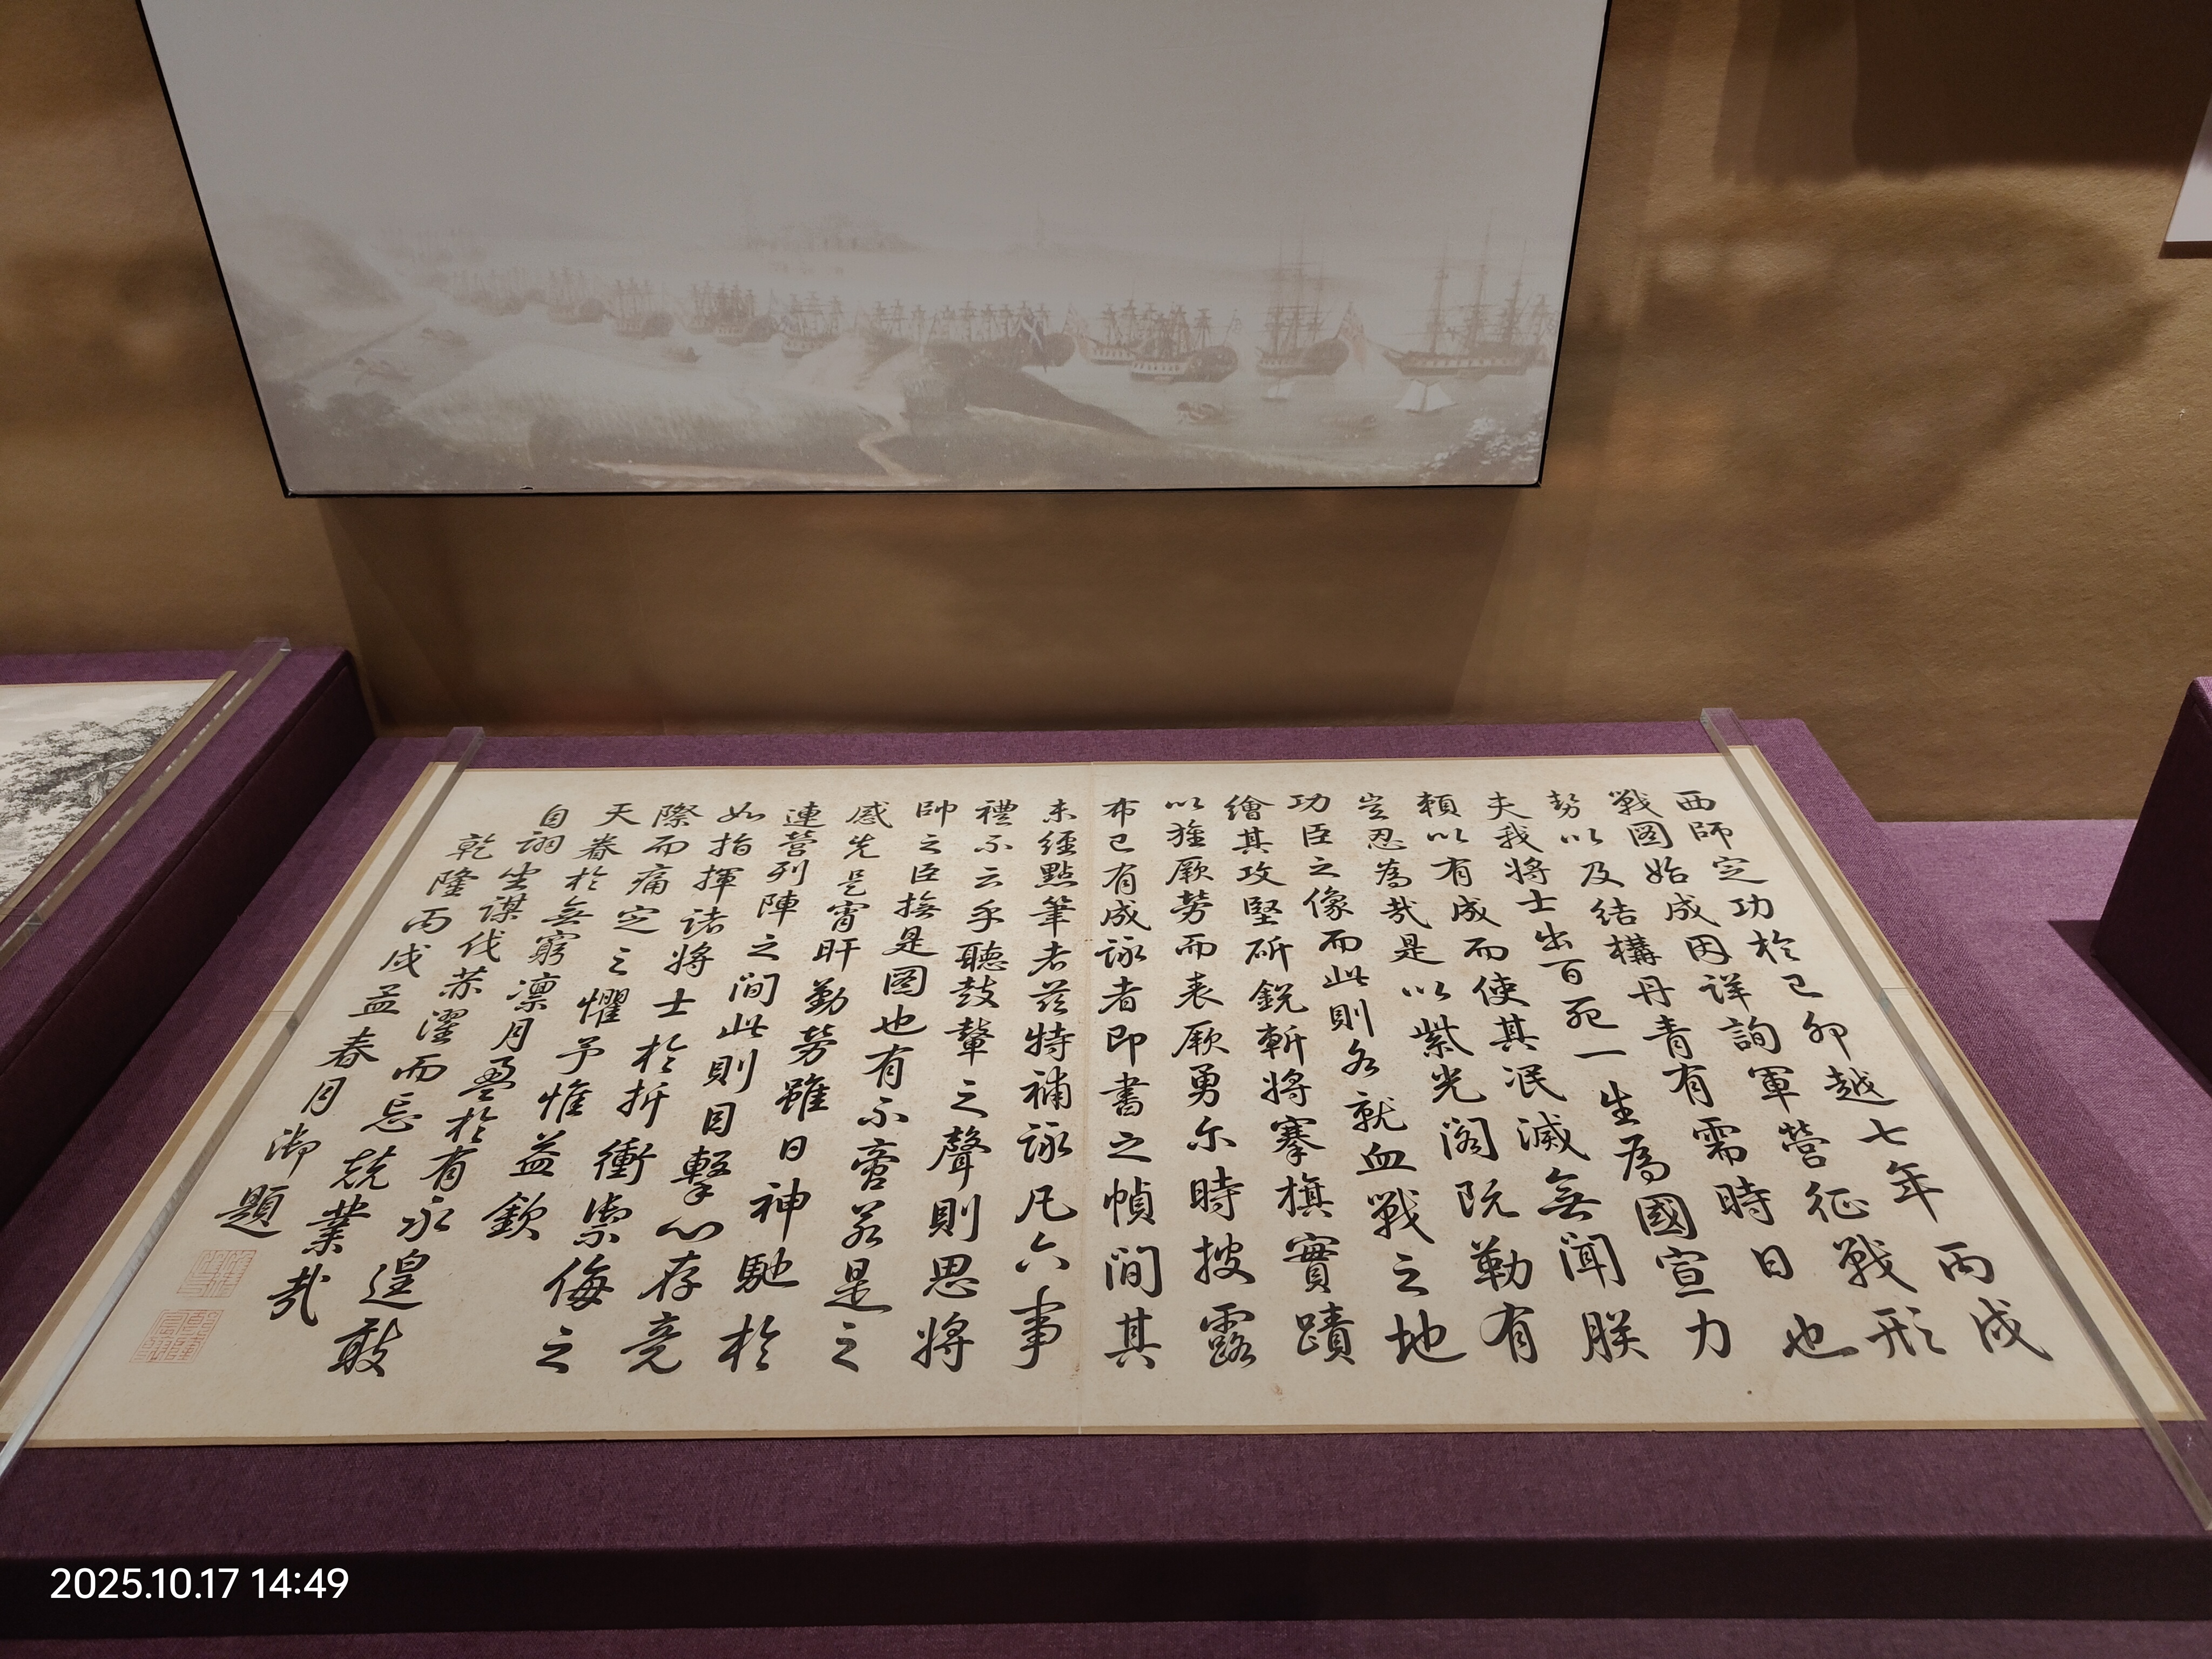 西師定功於己卯越七年丙戌
戰圖始成因詳詢軍營征戰形
勢以及結構丹青有需時日也
夫我將士出百死一生為國宣力
賴以有成而使其泯滅無聞朕
豈忍為哉是以紫光閣既勒有
功臣之像而此則各就血戰之地
繪其攻堅斫銳斬將搴旗實蹟
以旌厥勞而表厥勇尔時披露
布已有成詠者即書之幀間其
未經點筆者茲特補詠凡六事
禮不云乎聽鼓鼙之聲則思將
帥之臣撫是圖也有不啻若是之
感先是宵旰勤勞雖日神馳於
連營列陣之間此則目擊心存竟
如指揮諸將士於折衝禦侮之
際而痛定之懼予惟益欽
天眷於無窮凜月盈於有永遑敢
自詡坐謀伐赫濯而忘兢業哉
乾隆丙戌孟春月御題
2025.10.17 14:49